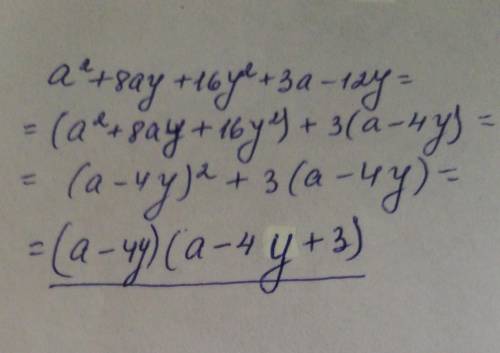 a²+8ay+16y²+3a-12y=
=(a²+8ay+16y²)+3(a-4y)=
= (a-4y)²+3(a-4y)=
=(a-4y)(a-4y+3)